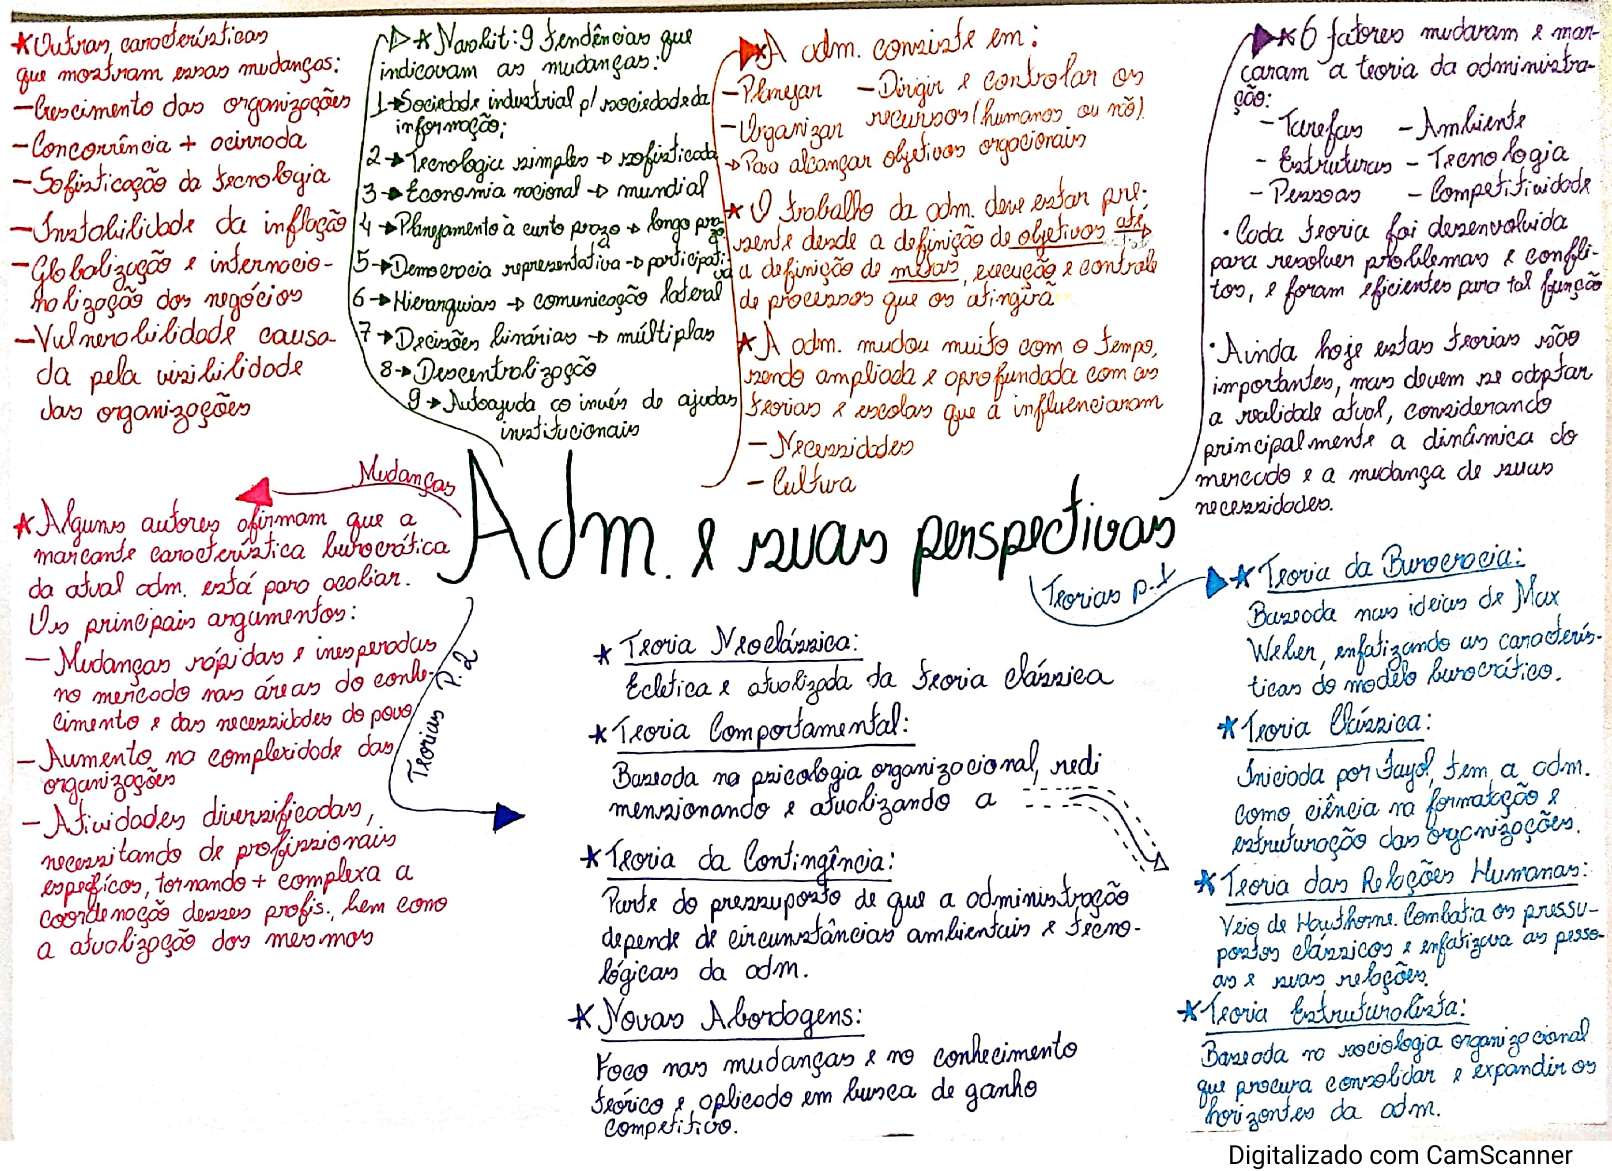 *Outras características
que mostram essas mudanças:
-Crescimento das organizações
-Concorrência + acirrada
-Sofisticação da tecnologia
-Instabilidade da inflação
-Globalização e internacio-
nalização dos negócios
-Vulnerabilidade causa-
da pela visibilidade
das organizações
* Nasbit: 9 tendências que
indicavam as mudanças:
1→Sociedade industrial p/ sociedade da
informação;
2→Tecnologia simples → sofisticada
3→Economia nacional → mundial
4→Planejamento à curto prazo → longo prazo
5→Democracia representativa → participativa
6→Hierarquias → comunicação lateral
7→Decisões binárias → múltiplas
8→Descentralização
9→Autoajuda ao invés de ajudas
institucionais
*A adm. consiste em:
-Planejar -Dirigir e controlar os
-Organizar recursos (humanos ou não)
→Para alcançar objetivos orgacionais
* O trabalho da adm. deve estar pre-
sente desde a definição de objetivos até
a definição de metas, execução e controle
de processos que os atingirá
*A adm. mudou muito com o tempo,
sendo ampliada e aprofundada com as
teorias e escolas que a influenciaram
- Necessidades
- Cultura
*6 fatores mudaram e mar-
caram a teoria da administra-
ção:
-Tarefas -Ambiente
-Estruturas -Tecnologia
-Pessoas -Competitividade
·Cada teoria foi desenvolvida
para resolver problemas e confli-
tos, e foram eficientes para tal função
·Ainda hoje estas teorias são
importantes, mas devem se adaptar
a realidade atual, considerando
principalmente a dinâmica do
mercado e a mudança de suas
necessidades.
Adm. e suas perspectivas
Mudanças
*Alguns autores afirmam que a
marcante característica burocrática
da atual adm. está para acabar.
Os principais argumentos:
-Mudanças rápidas e inesperadas
no mercado nas áreas do conhe-
cimento e das necessidades do povo
-Aumento na complexidade das
organizações
-Atividades diversificadas,
necessitando de profissionais
específicos, tornando + complexa a
coordenação desses profis., bem como
a atualização dos mesmos
Teorias P.2
* Teoria Neoclássica:
Eclética e atualizada da teoria clássica
*Teoria Comportamental:
Baseada na psicologia organizacional, redi
mensionando e atualizando a
*Teoria da Contingência:
Parte do pressuposto de que a administração
depende de circunstâncias ambientais e tecno-
lógicas da adm.
*Novas Abordagens:
Foco nas mudanças e no conhecimento
teórico e aplicado em busca de ganho
competitivo.
Teorias p.1
*Teoria da Burocracia:
Baseada nas ideias de Max
Weber, enfatizando as caracterís-
ticas do modelo burocrático.
*Teoria Clássica:
Iniciada por Fayol, tem a adm.
como ciência na formatação e
estruturação das organizações.
*Teoria das Relações Humanas:
Veio de Hawthorne. Combatia os pressu-
postos clássicos e enfatizava as pesso-
as e suas relações.
*Teoria Estruturalista:
Baseada na sociologia organizacional
que procura consolidar e expandir os
horizontes da adm.
Digitalizado com CamScanner